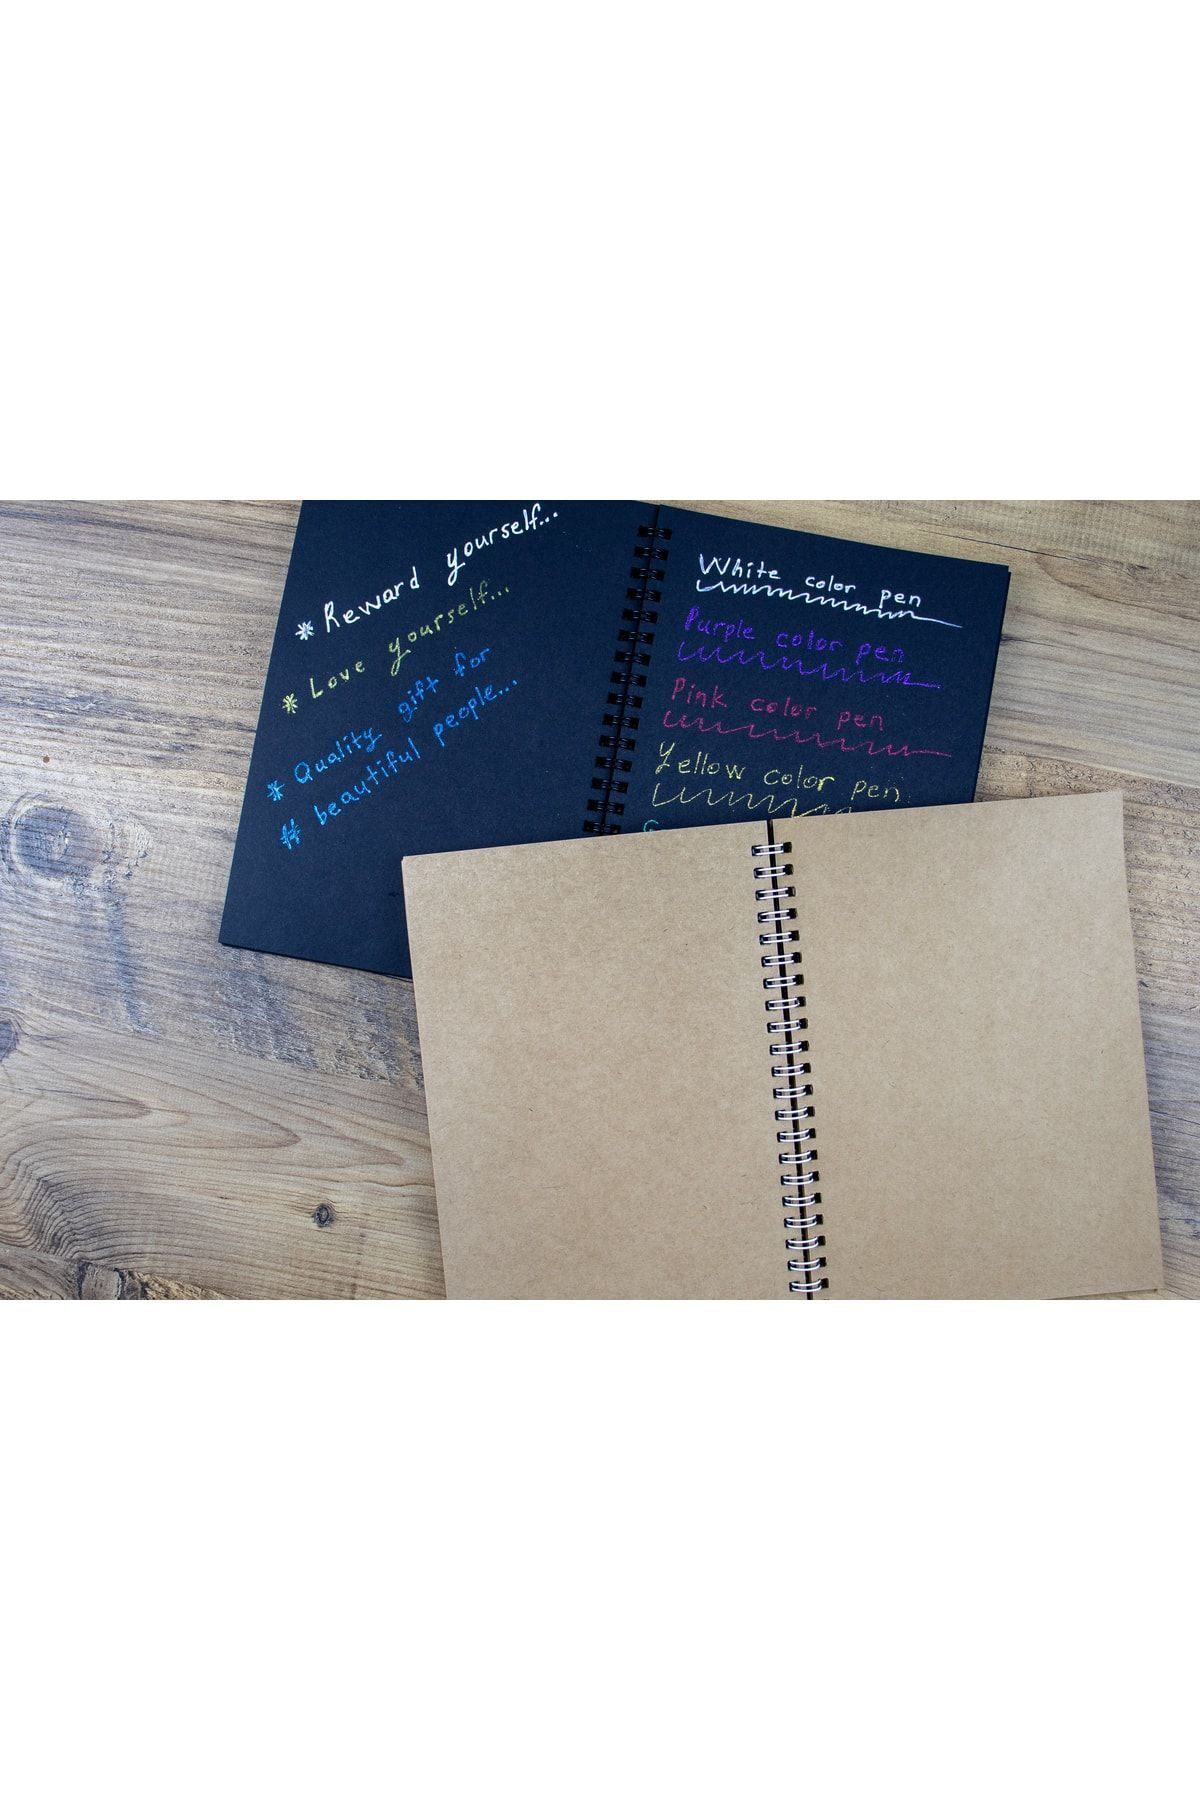 * Reward yourself...
* Love yourself...
* Quality gift for
# beautiful people...
White color pen
Purple color pen
Pink color pen
Yellow color pen